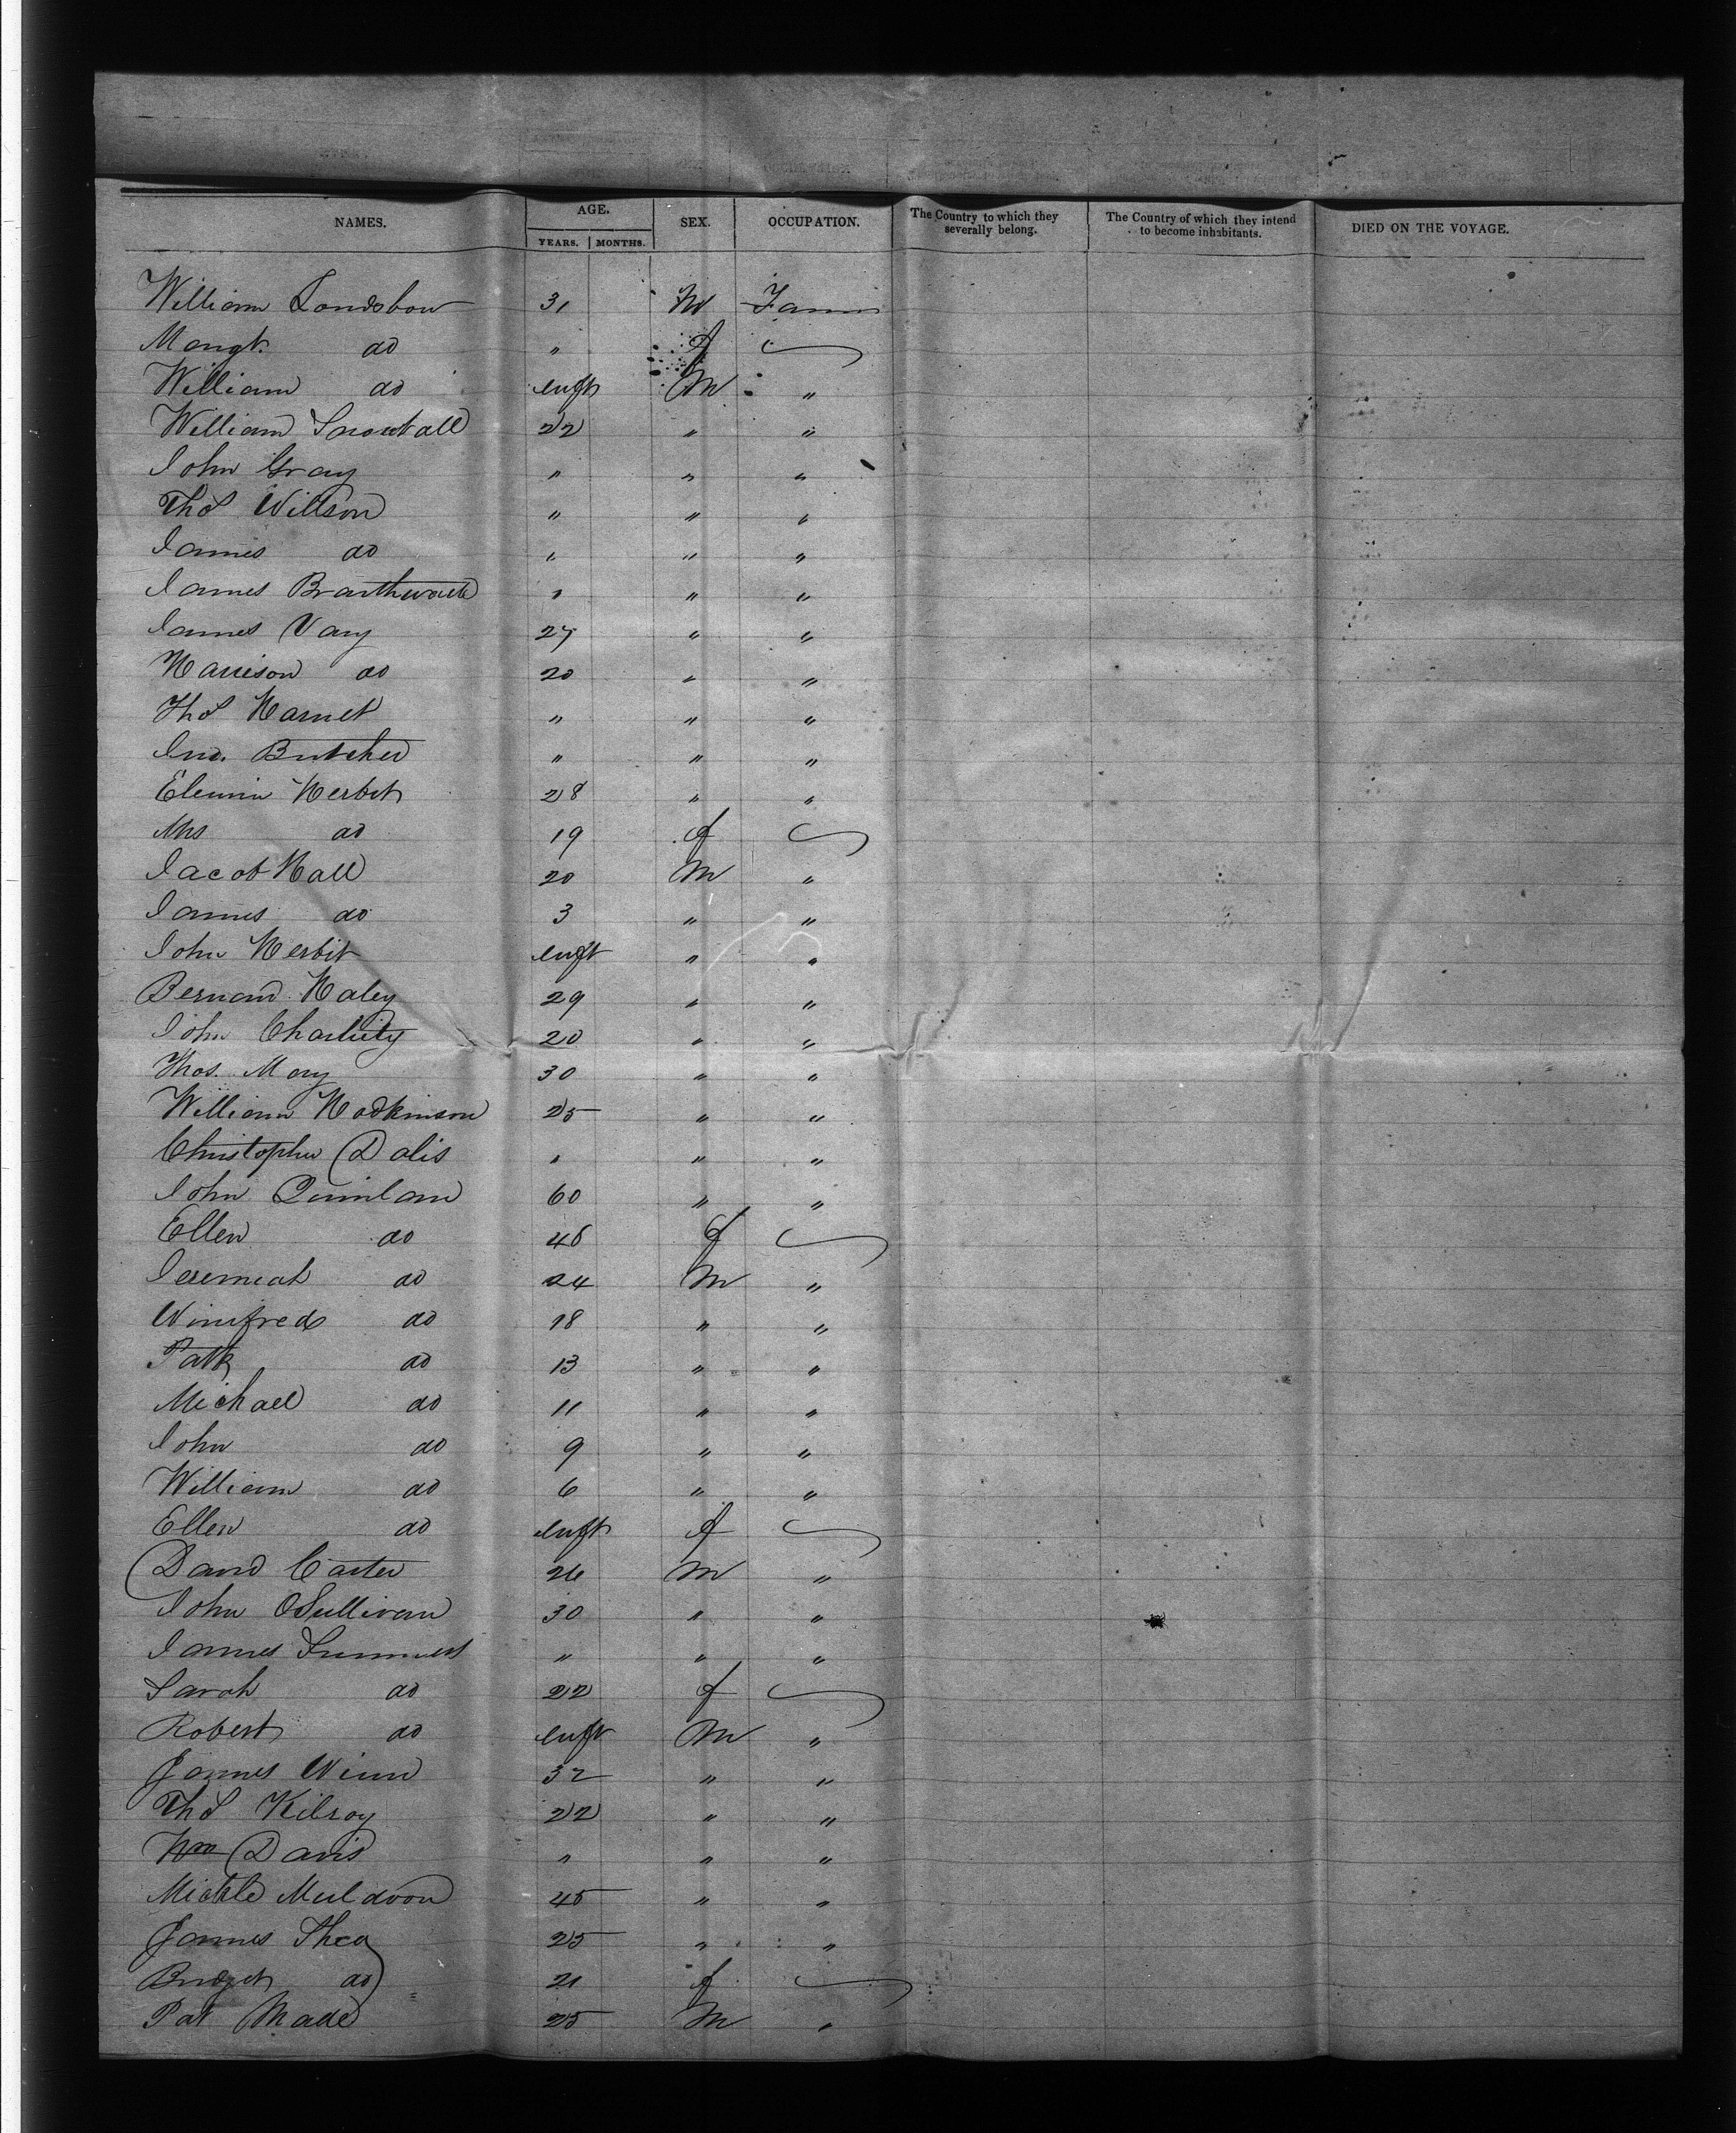 NAMES. AGE. YEARS. MONTHS. SEX. OCCUPATION. The Country to which they severally belong. The Country of which they intend to become inhabitants. DIED ON THE VOYAGE.
William 31 M
Margt. do " f
William do Inft M "
William 22 " "
John Gray " " "
Thos Willson " " "
James do " " "
James Braithwaite " " "
James Vary 27 " "
Harrison do 20 " "
Thos " " "
Jno. Butcher " " "
Herbit 28 " "
Mrs do 19 f
Jacob Hall 20 M "
James do 3 " "
John Herbit Inft " "
Bernard Haley 29 " "
John 20 " "
Thos. May 30 " "
William Hodkinson 25 " "
Christopher Dalis " " "
John Quinlan 60 " "
Ellen do 46 f
Jeremiah do 24 M "
Winifred do 18 " "
Patk do 13 " "
Michael do 11 " "
John do 9 " "
William do 6 " "
Ellen do Inft f
David Carter 26 M "
John OSullivan 30 " "
James " " "
Sarah do 22 f
Robert do Inft M "
James Winn 32 " "
Thos Kilroy 22 " "
Wm Davis " " "
Michle Muldoon 45 " "
James Shea 25 " "
Bridget do 21 f
Pat Made 25 M "